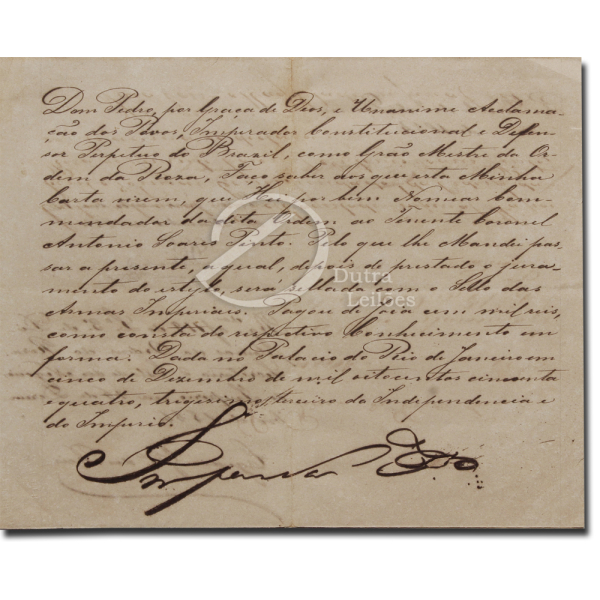 Dom Pedro, por Graça de Deos, e Unanime Acclama-
ção dos Povos, Imperador Constitucional e Defen-
sor Perpetuo do Brazil, como Grão Mestre da Or-
dem da Roza, Faço saber aos que esta Minha
Carta virem, que Hei por bem Nomear Com-
mendador da dita Ordem ao Tenente Coronel
Antonio Soares Pinto. Pelo que lhe Mandei pas-
sar a presente, a qual, depois de prestado o jura-
mento do estylo, será sellada com o Sello das
Armas Imperiaes. Pagou de joia cem mil reis,
como consta do respectivo Conhecimento em
forma. Dada no Palacio do Rio de Janeiro em
cinco de Dezembro de mil oitocentos cincoenta
e quatro, trigesimo terceiro da Independencia e
do Imperio.
Imperador
Dutra
Leilões